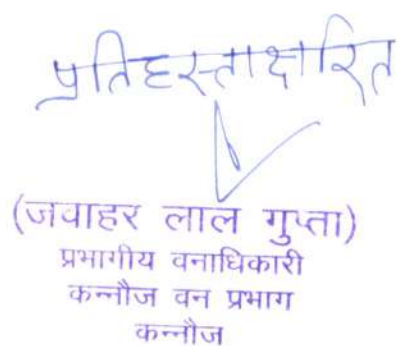 प्रतिहस्ताक्षारित
(जवाहर लाल गुप्ता)
प्रभागीय वनाधिकारी
कन्नौज वन प्रभाग
कन्नौज